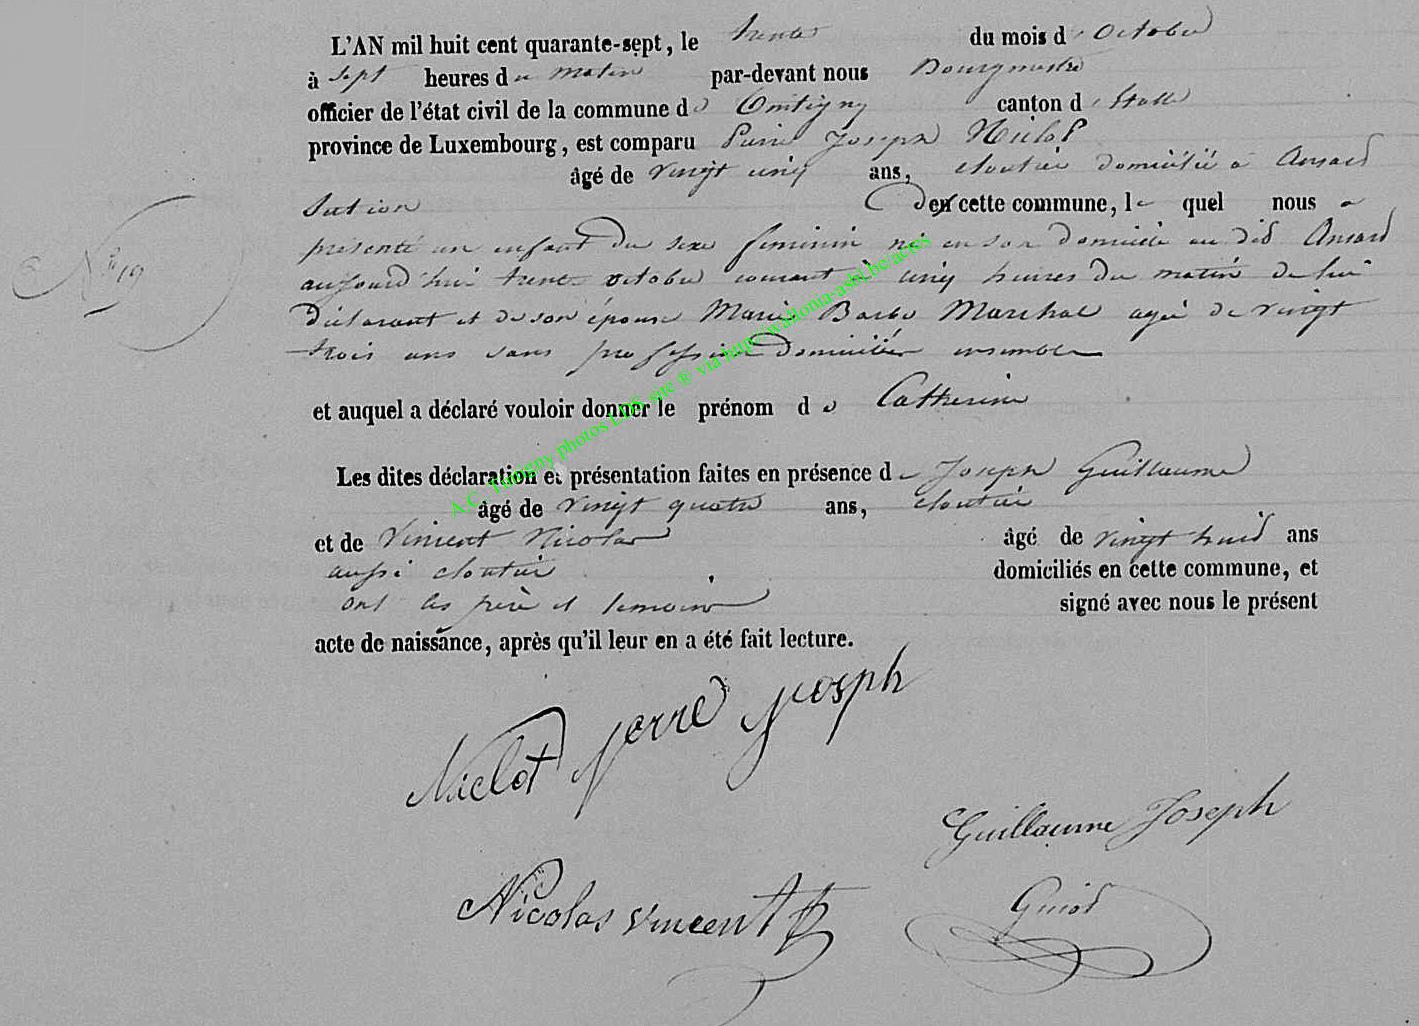 L'AN mil huit cent quarante-sept, le trente du mois d'octobre
à sept heures du matin par-devant nous Bourgmestre
officier de l'état civil de la commune de Tintigny canton d'Etalle
province de Luxembourg, est comparu Pierre Joseph Niclot
âgé de vingt cinq ans, cloutier domicilié à Ansard
section de cette commune, lequel nous a
présenté un enfant du sexe féminin né en son domicile au dit Ansard
aujourd'hui trente octobre courant à cinq heures du matin de lui
déclarant et de son épouse Marie Barbe Marchal agée de vingt
trois ans sans profession domiciliés ensemble
et auquel a déclaré vouloir donner le prénom de Catherine
Les dites déclaration et présentation faites en présence de Joseph Guillaume
âgé de vingt quatre ans, cloutier
et de Vincent Nicolas âgé de vingt huit ans
aussi cloutier domiciliés en cette commune, et
ont les père et temoins signé avec nous le présent
acte de naissance, après qu'il leur en a été fait lecture.
N° 19
Niclot pierre joseph
Guillaume Joseph
Nicolas vincent
Guiot
A.C. Tintigny photos LDS site ® via http://wallonia-asbl.be/actes